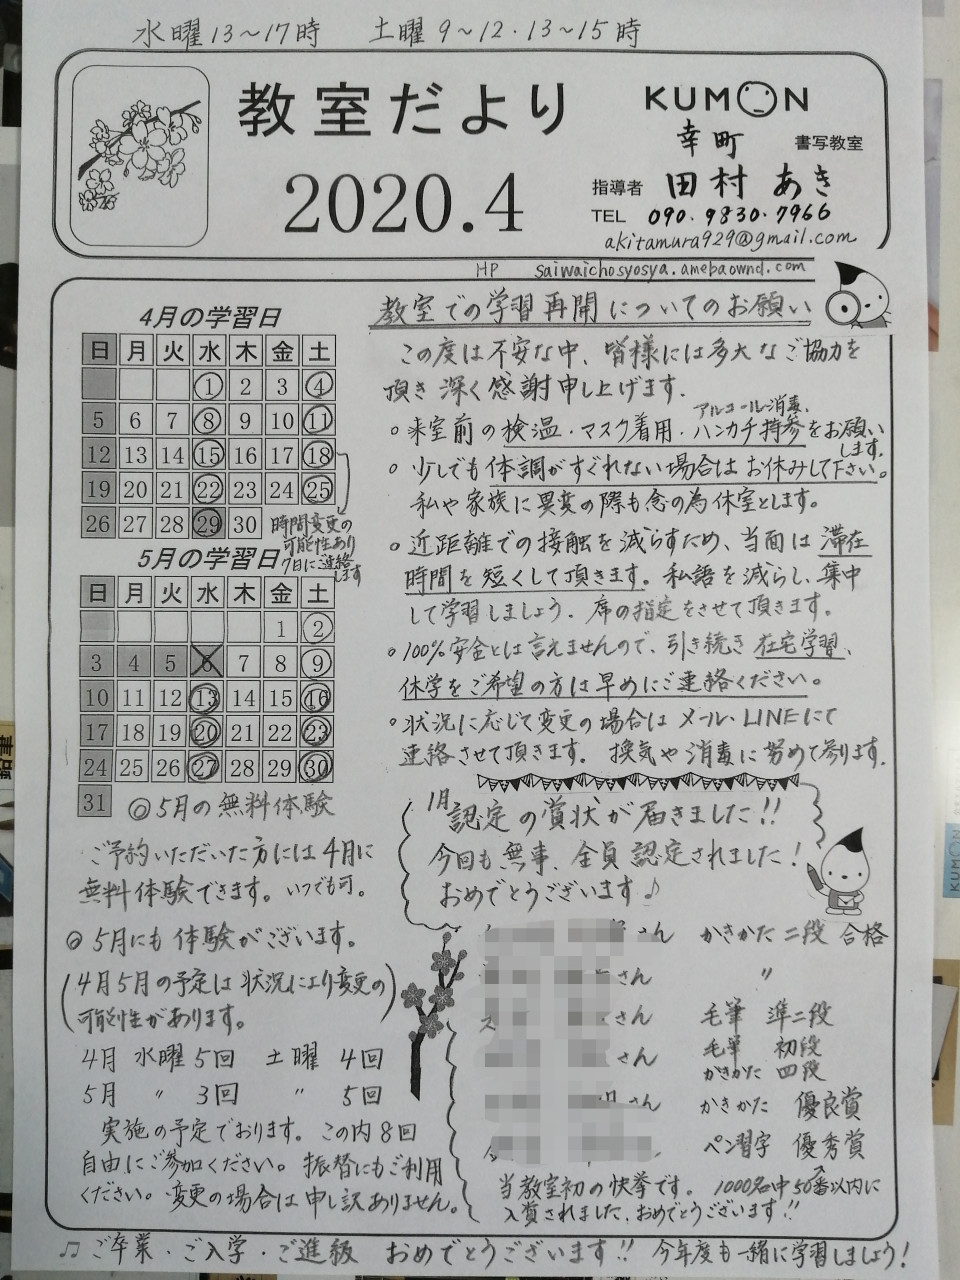 水曜13～17時　土曜9～12・13～15時
教室だより
2020.4
KUMON
幸町 書写教室
指導者 田村 あき
TEL 090・9830・7966
akitamura929@gmail.com
HP saiwaichosyosya.amebaownd.com
4月の学習日
日 月 火 水 木 金 土
1 2 3 4
5 6 7 8 9 10 11
12 13 14 15 16 17 18
19 20 21 22 23 24 25
26 27 28 29 30
時間変更の
可能性あり
7日にご連絡
します
5月の学習日
日 月 火 水 木 金 土
1 2
3 4 5 6 7 8 9
10 11 12 13 14 15 16
17 18 19 20 21 22 23
24 25 26 27 28 29 30
31
◎5月の無料体験
ご予約いただいた方には4月に
無料体験できます。いつでも可。
◎5月にも体験がございます。
(4月5月の予定は状況により変更の
可能性があります。)
4月 水曜5回 土曜 4回
5月 〃 3回 〃 5回
実施の予定でおります。この内8回
自由にご参加ください。振替にもご利用
ください。変更の場合は申し訳ありません。
教室での学習再開についてのお願い
この度は不安な中、皆様には多大なご協力を
頂き深く感謝申し上げます。
アルコール消毒、
○来室前の検温・マスク着用・ハンカチ持参をお願い
します。
○少しでも体調がすぐれない場合はお休みして下さい。
私や家族に異変の際も念の為休室とします。
○近距離での接触を減らすため、当面は滞在
時間を短くして頂きます。私語を減らし、集中
して学習しましょう。席の指定をさせて頂きます。
○100%安全とは言えませんので、引き続き在宅学習、
休学をご希望の方は早めにご連絡ください。
○状況に応じて変更の場合はメール・LINEにて
連絡させて頂きます。換気や消毒に努めて参ります。
1月認定の賞状が届きました!!
今回も無事、全員認定されました!
おめでとうございます♪
さん かきかた 二段 合格
さん 〃
さん 毛筆 準二段
さん 毛筆 初段
かきかた 四段
さん かきかた 優良賞
ペン習字 優秀賞
当教室初の快挙です。1000名中50番以内に
入賞されました。おめでとうございます!!
♫ご卒業・ご入学・ご進級 おめでとうございます!! 今年度も一緒に学習しましょう!
KUMON